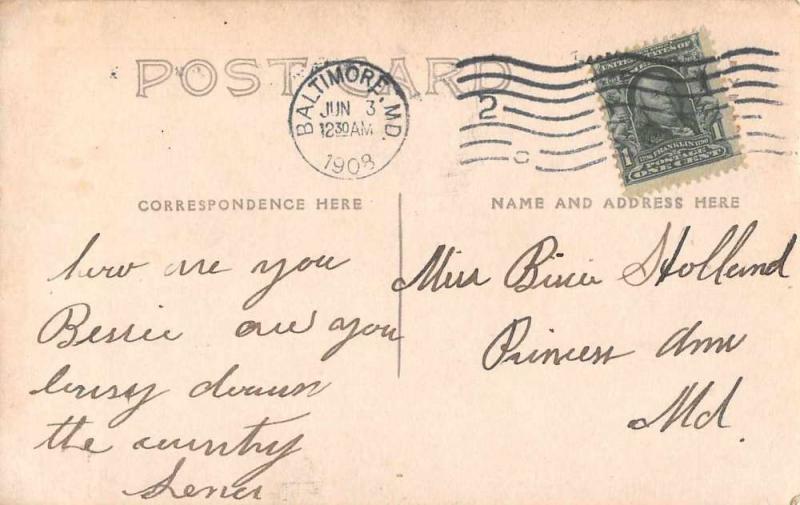 POST CARD
BALTIMORE, MD.
JUN 3
1230 AM
1908
2
UNITED STATES OF
1 FRANKLIN 1
POSTAGE
ONE CENT
CORRESPONDENCE HERE
NAME AND ADDRESS HERE
how are you
Bessie are you
busy down
the country
Miss Holland
Princess Ann
Md.